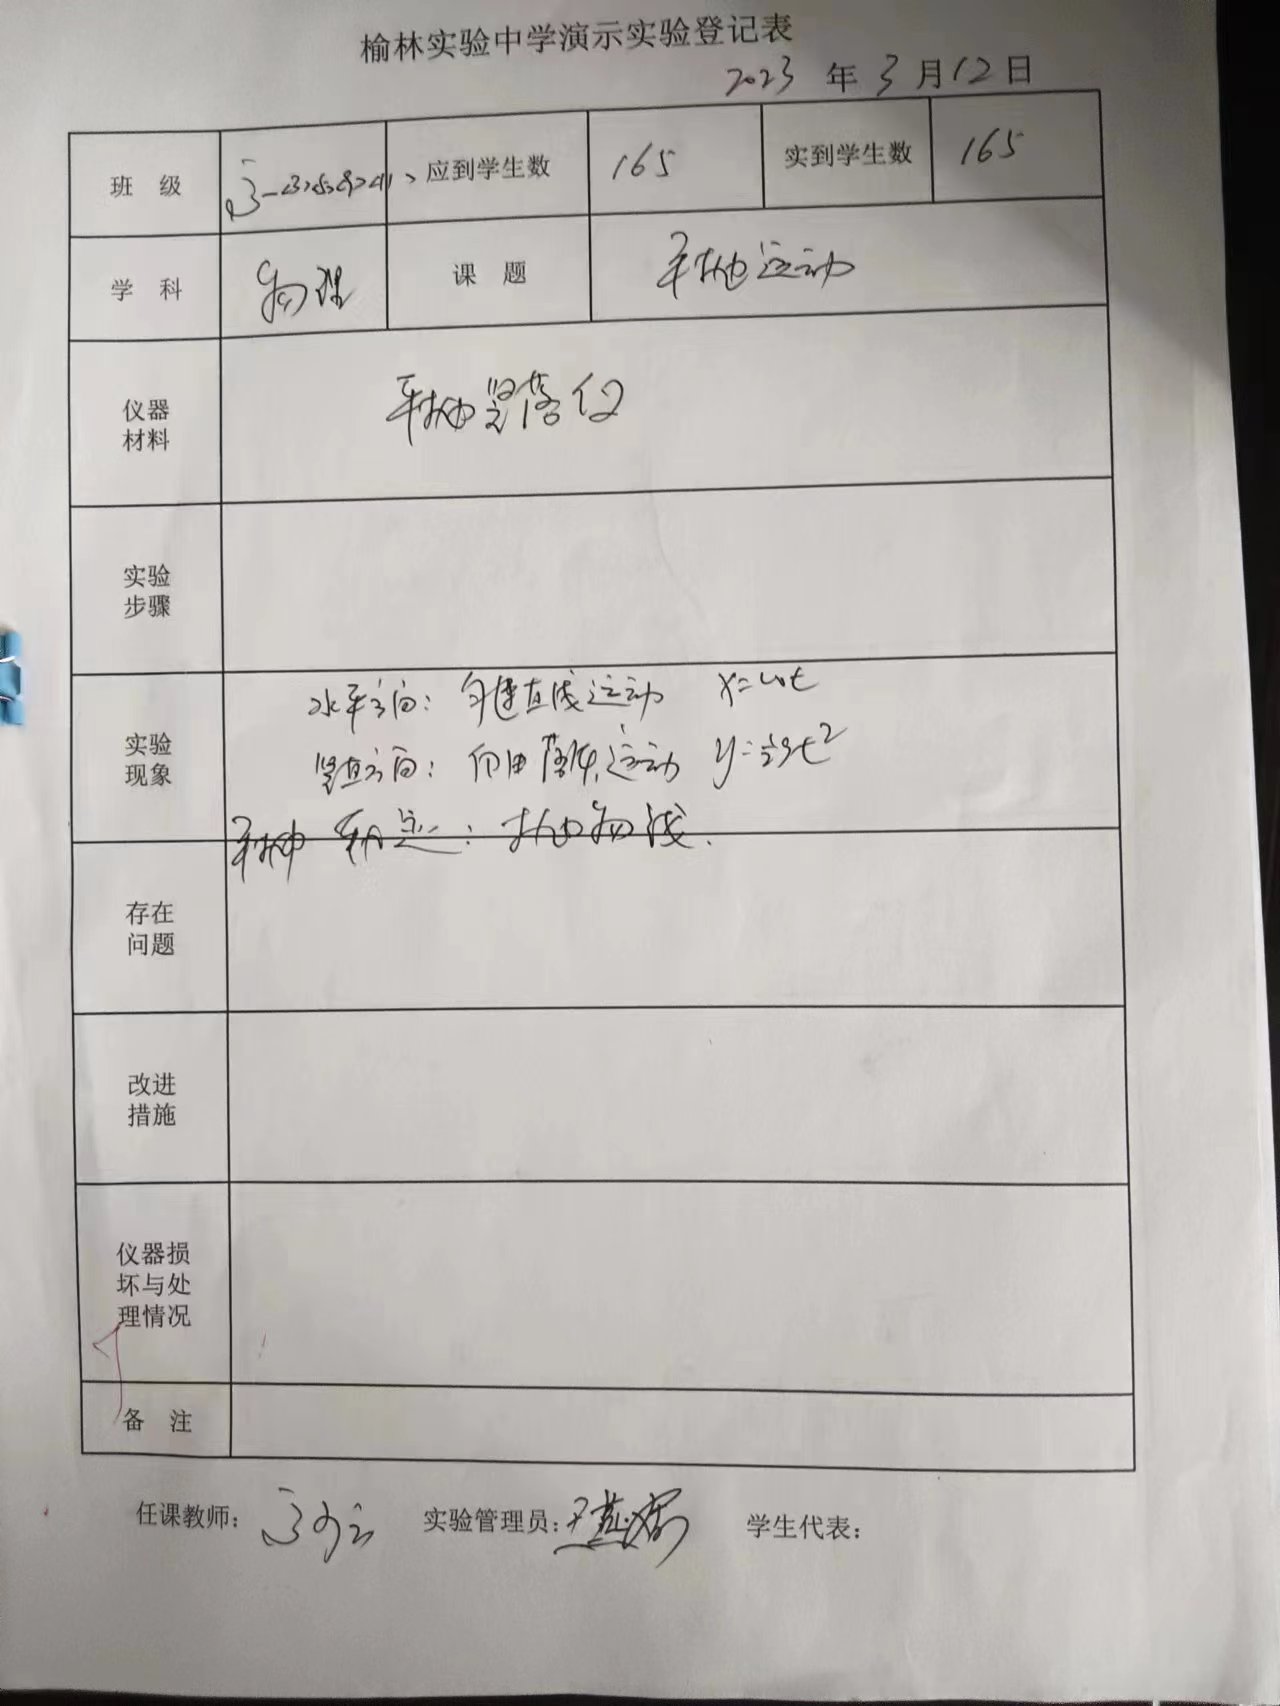 榆林实验中学演示实验登记表
2023 年 3 月 12 日
班 级 高一 应到学生数 165 实到学生数 165
学 科 物理 课 题 平抛运动
仪器
材料
平抛竖落仪
实验
步骤
水平方向：匀速直线运动 x=v₀t
实验
现象
竖直方向：自由落体运动 y=½gt²
平抛 轨迹：抛物线.
存在
问题
改进
措施
仪器损
坏与处
理情况
备 注
任课教师： 实验管理员： 学生代表：